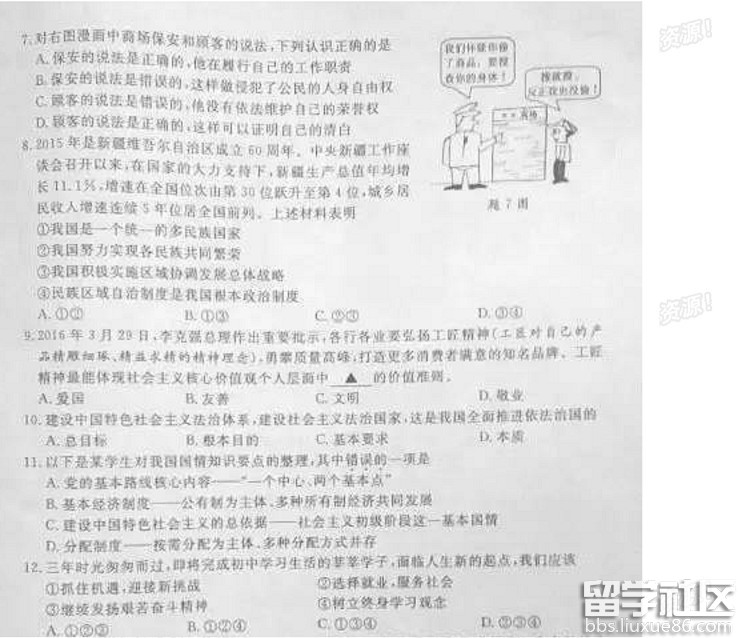 7.对右图漫画中商场保安和顾客的说法,下列认识正确的是
A.保安的说法是正确的,他在履行自己的工作职责
B.保安的说法是错误的,这样做侵犯了公民的人身自由权
C.顾客的说法是错误的,他没有依法维护自己的荣誉权
D.顾客的说法是正确的,这样可以证明自己的清白
我们怀疑你偷
了商品,要搜
查你的身体!
搜就搜,
反正我也没偷!
商场
题7图
8.2015年是新疆维吾尔自治区成立60周年、中央新疆工作座
谈会召开以来,在国家的大力支持下,新疆生产总值年均增
长11.1%,增速在全国位次由第30位跃升至第4位,城乡居
民收入增速连续5年位居全国前列。上述材料表明
①我国是一个统一的多民族国家
②我国努力实现各民族共同繁荣
③我国积极实施区域协调发展总体战略
④民族区域自治制度是我国根本政治制度
A.①② B.①③ C.②③ D.③④
9.2016年3月29日,李克强总理作出重要批示,各行各业要弘扬工匠精神(工匠对自己的产
品精雕细琢、精益求精的精神理念),勇攀质量高峰,打造更多消费者满意的知名品牌。工匠
精神最能体现社会主义核心价值观个人层面中 ▲ 的价值准则。
A.爱国 B.友善 C.文明 D.敬业
10.建设中国特色社会主义法治体系,建设社会主义法治国家,这是我国全面推进依法治国的
A.总目标 B.根本目的 C.基本要求 D.本质
11.以下是某学生对我国国情知识要点的整理,其中错误的一项是
A.党的基本路线核心内容——“一个中心、两个基本点”
B.基本经济制度——公有制为主体、多种所有制经济共同发展
C.建设中国特色社会主义的总依据——社会主义初级阶段这一基本国情
D.分配制度——按需分配为主体、多种分配方式并存
12.三年时光匆匆而过,即将完成初中学习生活的莘莘学子,面临人生新的起点,我们应该
①抓住机遇,迎接新挑战 ②选择就业,服务社会
③继续发扬艰苦奋斗精神 ④树立终身学习观念
A.①②③ B.①②④ C.①③④ D.②③④
资源!
资源!
留学社区
bbs.liuxue86.com